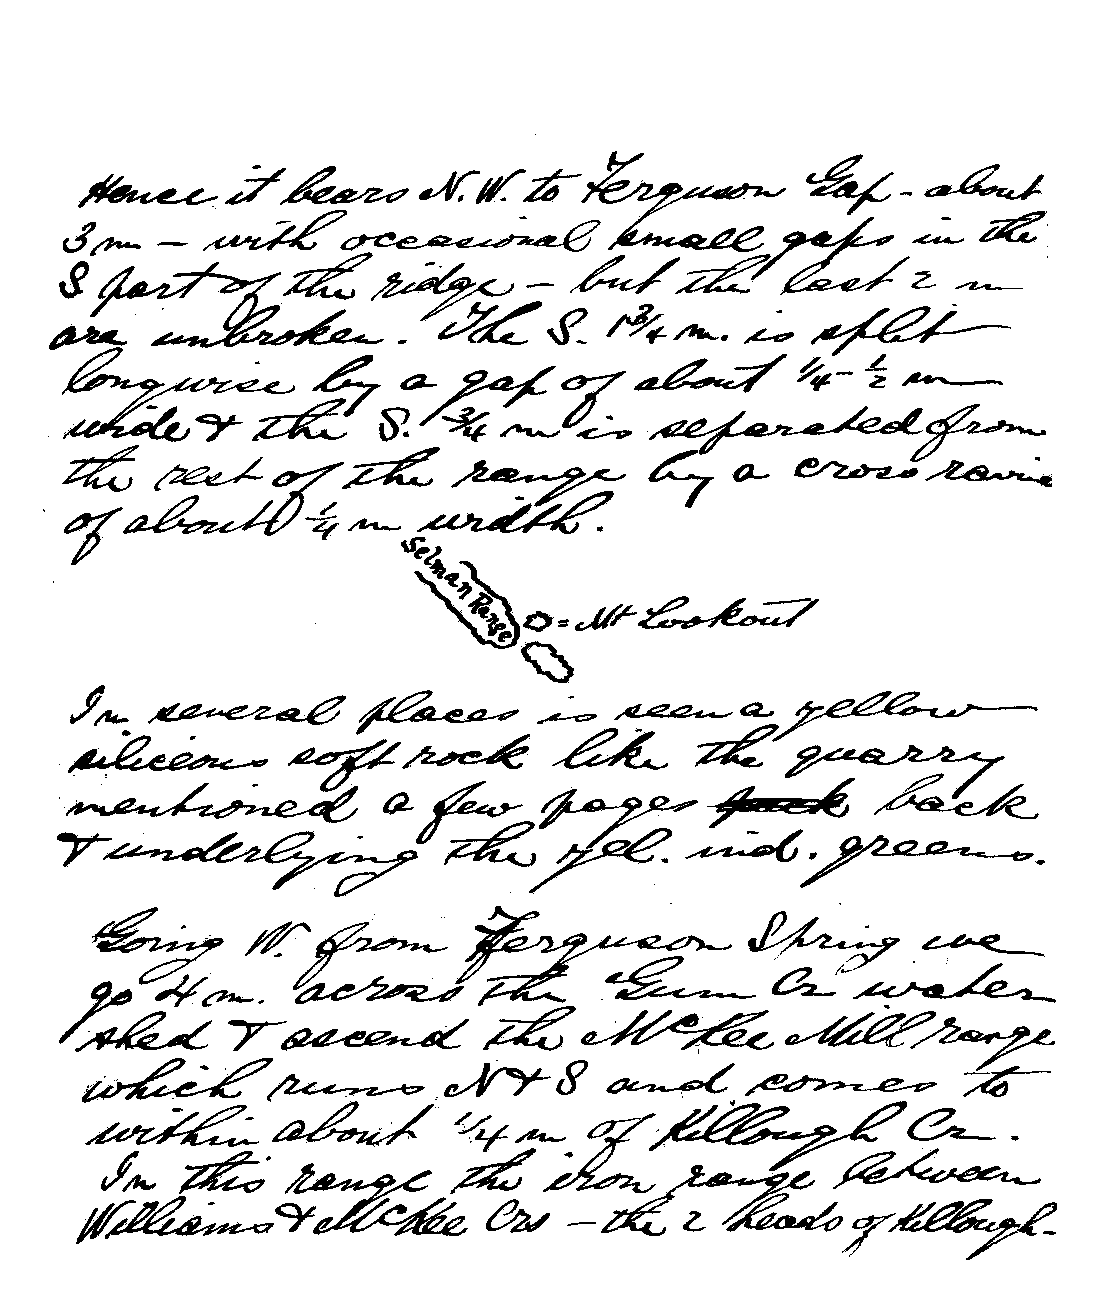 Hence it bears N.W. to Ferguson Gap - about
3 m - with occasional small gaps in the
S part of the ridge - but the last 2 m
are unbroken. The S. 1 3/4 m. is split
longwise by a gap of about 1/4 - 1/2 m
wide & the S. 3/4 m is separated from
the rest of the range by a cross ravine
of about 1/4 m width.
Selman Range
= Mt Lookout
In several places is seen a yellow
siliceous soft rock like the quarry
mentioned a few pages back
& underlying the yel. ind. greens.
Going W. from Ferguson Spring we
go 4 m. across the Gum Cr water
shed & ascend the McKee Mill range
which runs N & S and comes to
within about 1/4 m of Killough Cr.
In this range the iron range between
Williams & McKee Crs - the 2 heads of Killough-